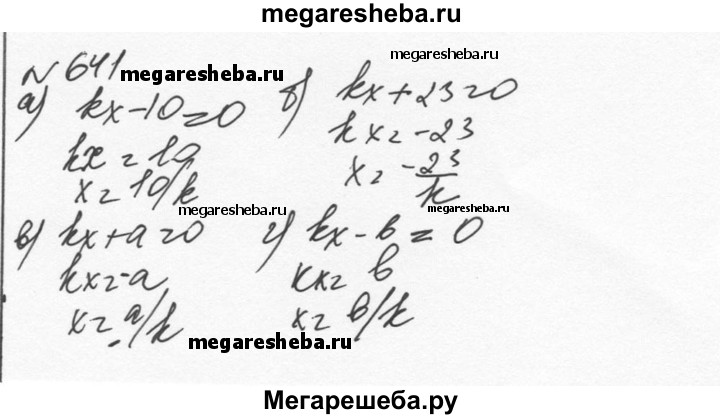 megaresheba.ru
№ 641
megaresheba.ru
а) kx-10=0
kx=10
x=10/k
megaresheba.ru
б) kx+23=0
kx=-23
x=-23/k
megaresheba.ru
в) kx+a=0
kx=-a
x=-a/k
megaresheba.ru
г) kx-b=0
kx=b
x=b/k
megaresheba.ru
Мегарешеба.ру